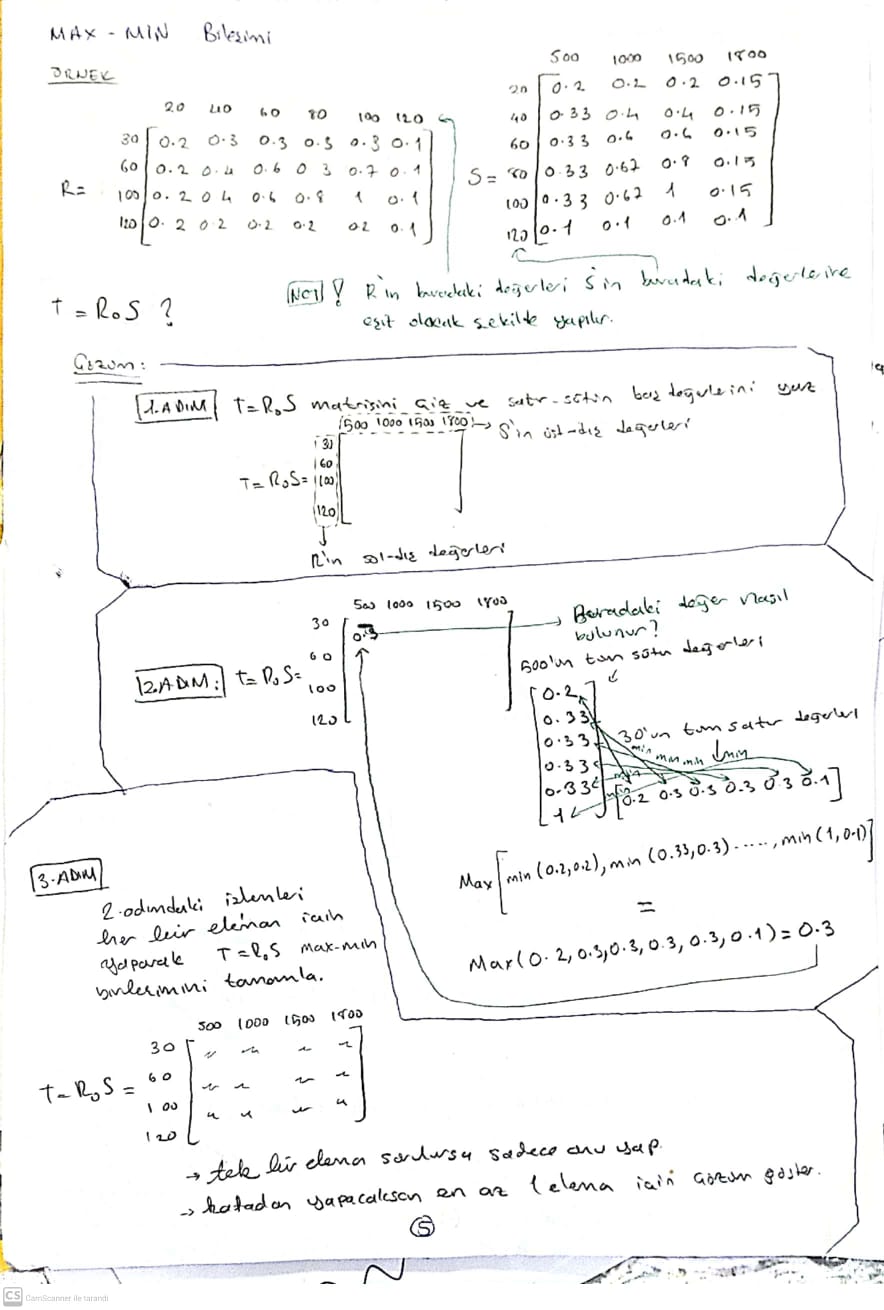 MAX - MIN Bileşimi
ÖRNEK
20 40 60 80 100 120
R=
30 0.2 0.3 0.3 0.3 0.3 0.1
60 0.2 0.4 0.6 0 3 0.7 0.1
100 0.2 0 4 0.6 0.8 1 0.1
120 0.2 0 2 0.2 0.2 0.2 0.1
500 1000 1500 1800
S=
20 0.2 0.2 0.2 0.15
40 0.33 0.4 0.4 0.15
60 0.33 0.6 0.6 0.15
80 0.33 0.67 0.8 0.15
100 0.33 0.67 1 0.15
120 0.1 0.1 0.1 0.1
NOT ! R'in buradaki değerleri S'in buradaki değerlerine
eşit olacak şekilde yapılır.
T = R∘S ?
Çözüm:
1.ADIM T=R∘S matrisini çiz ve satır-sütun baz değerleini yaz
500 1000 1500 1800 → S'in üst-dış değerleri
T= R∘S=
30
60
100
120
R'in sol-dış değerleri
500 1000 1500 1800
2.ADIM: T= R∘S=
30 0.3
60
100
120
Buradaki değer nasıl
bulunur?
500'ün tüm sütun değerleri
0.2
0.33
0.33
0.33
0.33
1
30'un tüm satır değerleri
min min min min
min min
[0.2 0.3 0.3 0.3 0.3 0.1]
Max[min(0.2,0.2), min(0.33,0.3) ....., min(1,0.1)]
=
Max(0.2,0.3,0.3,0.3,0.3,0.1)=0.3
3.ADIM
2.adımdaki işlemleri
her bir eleman için
yaparak T=R∘S max-min
birleşimini tamamla.
500 1000 1500 1800
T= R∘S =
30
60
100
120
→ tek bir eleman sorulursa sadece onu yap.
→ kafadan yapacaksan en az 1 eleman için çözüm göster.
5
CS CamScanner ile tarandı